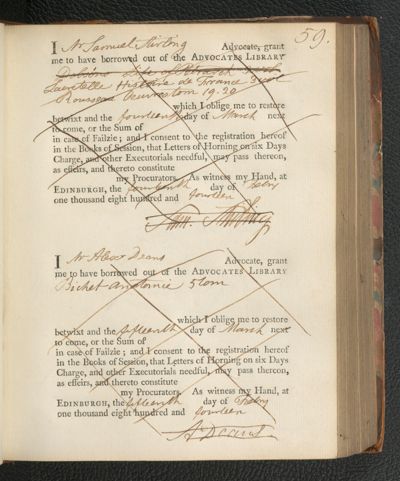 59.
I Mr Samuel Stirling Advocate, grant
me to have borrowed out of the ADVOCATES LIBRARY
Dobsons Life of Petrarch
Histoire de France 3 vol
Rousseau Oeuvres tom 19.20
which I oblige me to restore
betwixt and the fourteenth day of March next
to come, or the Sum of
in case of Failzie; and I consent to the registration hereof
in the Books of Session, that Letters of Horning on six Days
Charge, and other Executorials needful, may pass thereon,
as effeirs, and thereto constitute
my Procurators. As witness my Hand, at
EDINBURGH, the fourteenth day of Febry
one thousand eight hundred and fourteen
Sam. Stirling
I Mr Alexr Deans Advocate, grant
me to have borrowed out of the ADVOCATES LIBRARY
Bichat anatomie 5 tom
which I oblige me to restore
betwixt and the fifteenth day of March next
to come, or the Sum of
in case of Failzie; and I consent to the registration hereof
in the Books of Session, that Letters of Horning on six Days
Charge, and other Executorials needful, may pass thereon,
as effeirs, and thereto constitute
my Procurators. As witness my Hand, at
EDINBURGH, the fifteenth day of Febry
one thousand eight hundred and fourteen
Ar Deans